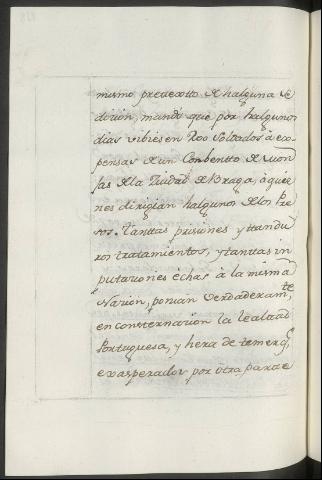 mismo pretexto de halguna se
dision, mandò que por halgunos
dias vibiesen 200 Soltados à ex
pensas de un Conbentto de Mon
jas de la Ziudad de Braga, à quie
nes dirigian halgunos de los Pre
sos. Tanttas prisiones y ttan du
ros tratamientos, y tanttas im
putaziones echas à la misma
Nazion, ponian verdaderam.te
en consternazion la Lealtad
Portuguesa, y hera de temer q.e
exasperados por otra parte